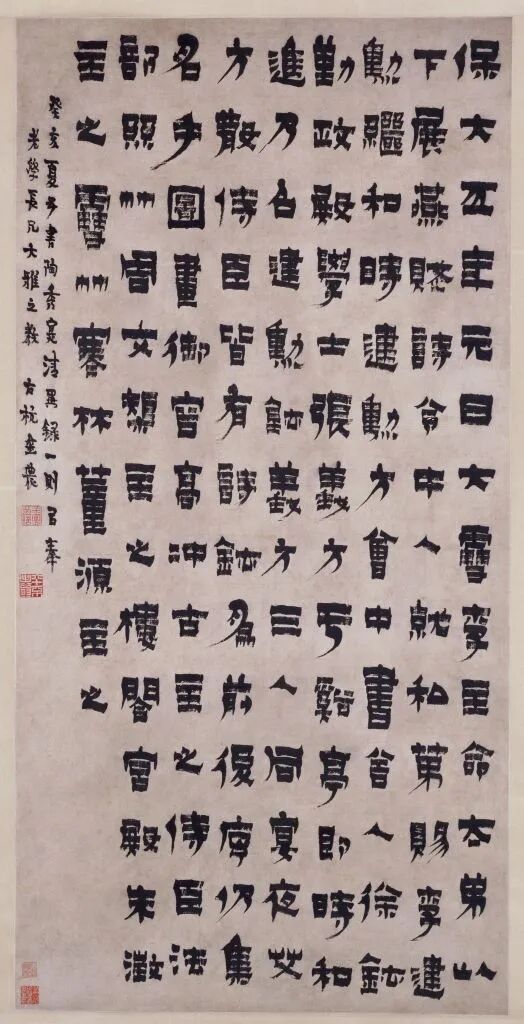 保大五年元日大雪李主命太弟以
下展燕賦詩令中人就和第賜李建
勳繼和時建勳方會中書舍人徐鉉
勤政殿學士張義方于谿亭即時和
進乃召建勳鉉義方三人同宴夜艾
方散侍臣皆有詩鉉為前後序仍集
名手圖畫御容高冲古主之侍臣法
部照竹周文矩主之樓閣宮殿朱澂
主之雪竹寒林董源主之
癸亥夏書陶秀實清異錄一則㠯奉
老學長兄大雅之教 古杭金農